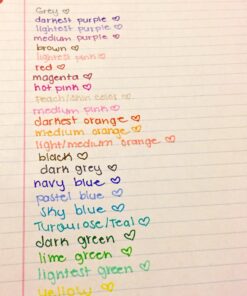 Grey ♡
darkest purple ♡
lightest purple ♡
medium purple ♡
brown ♡
lightest pink ♡
red ♡
magenta ♡
hot pink ♡
peach/skin color ♡
medium pink ♡
darkest orange ♡
medium orange ♡
light/medium orange ♡
black ♡
dark grey ♡
navy blue ♡
pastel blue ♡
sky blue ♡
Turquoise/Teal ♡
dark green ♡
lime green ♡
lightest green ♡
yellow ♡